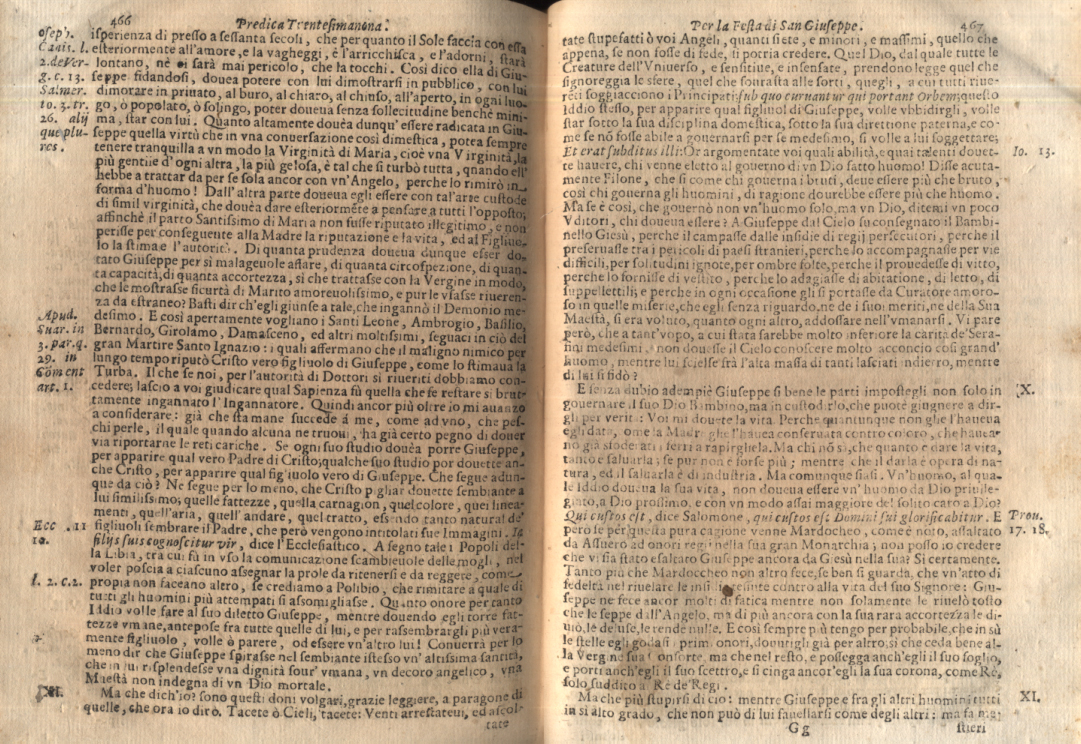 466
Predica Trentesimanona.
isperienza di presso a sessanta secoli, che per quanto il Sole faccia con essa
esteriormente all'amore, e la vagheggi, e l'arricchisca, e l'adorni, stará
lontano, nè vi sarà mai pericolo, che la tocchi. Cosi dico ella di Giu-
seppe fidandosi, douea potere con lui dimostrarsi in pubblico, con lui
dimorare in priuato, al buro, al chiaro, al chiuso, all'aperto, in ogni luo-
go, ò popolato, ò solingo, poter doueua senza sollecitudine benchè mini-
ma, star con lui. Quanto altamente douèa dunqu' essere radicata in Giu-
seppe quella virtù che in vna conuersazione così dimestica, potea sempre
tenere tranquilla a vn modo la Virginità di Maria, cioè vna Virginità, la
più gentile d'ogni altra, la più gelosa, è tal che si turbò tutta, quando ell'
hebbe a trattar da per se sola ancor con vn'Angelo, perche lo rimirò in
forma d'huomo! Dall'altra parte doueua egli essere con tal'arte custode
di simil virginità, che douèa dare esteriormẽte a pensare a tutti l'opposto;
affinchè il parto Santissimo di Maria non fusse riputato illegitimo, e non
perisse per conseguente alla Madre la riputazione e la vita, ed al Figliuo-
lo la stima e l'autorità. Di quanta prudenza doueua dunque esser do-
tato Giuseppe per sì malageuole affare, di quanta circospezione, di quan-
ta capacità, di quanta accortezza, sì che trattasse con la Vergine in modo,
che le mostrasse sicurtà di Marito amoreuolissimo, e pur le vsasse riueren-
za da estraneo? Basti dir ch'egli giunse a tale, che ingannò il Demonio me-
desimo. E così apertamente vogliano i Santi Leone, Ambrogio, Basilio,
Bernardo, Girolamo, Damasceno, ed altri moltissimi, seguaci in ciò del
gran Martire Santo Ignazio: i quali affermano che il maligno nimico per
lungo tempo riputò Cristo vero figliuolo di Giuseppe, come lo stimaua la
Turba. Il che se noi, per l'autorità di Dottori sì riueriti dobbiamo con-
cedere; lascio a voi giudicare qual Sapienza fù quella che fe restare sì brut-
tamente ingannato l'Ingannatore. Quindi ancor più oltre io mi auanzo
a considerare: già che sta mane succede à me, come ad vno, che pes-
chi perle, il quale quando alcuna ne truoui, ha già certo pegno di douer
via riportarne le reti cariche. Se ogni suo studio douèa porre Giuseppe,
per apparire qual vero Padre di Cristo; qualche suo studio por douette an-
che Cristo, per apparire qual figliuolo vero di Giuseppe. Che segue adun-
que da ciò? Ne segue per lo meno, che Cristo pigliar douette sembiante a
lui similissimo; quelle fattezze, quella carnagion, quel colore, quei linea-
menti, quell'aria, quell'andare, quel tratto, essendo tanto natural de'
figliuoli sembrare il Padre, che però vengono intitolati sue Immagini. In
filijs suis cognoscitur vir, dice l'Ecclesiastico. A segno tale i Popoli del-
la Libia, tra cui fù in vso la comunicazione scambieuole delle mogli, nel
voler poscia a ciascuno assegnar la prole da ritenersi e da reggere, come
propia non faceano altro, se crediamo a Polibio, che rimitare a quale di
tutti gli huomini più attempati si assomigliasse. Quanto onore per tanto
Iddio volle fare al suo diletto Giuseppe, mentre douendo egli torre fat-
tezze vmane, antepose fra tutte quelle di lui, e per rassembrargli più vera-
mente figliuolo, volle ò parere, od essere vn'altro lui! Conuerrà per lo
meno dir che Giuseppe spirasse nel sembiante istesso vn' altissima santità,
che in lui risplendesse vna dignità sour' vmana, vn decoro angelico, vna
Maestà non indegna di vn Dio mortale.
Ma che dich'io? sono questi doni volgari, grazie leggiere, a paragone di
quelle, che ora io dirò. Tacete ò Cieli, tacete: Venti arrestateui, ed ascol-
tate
oseph.
Canis. l.
2. de Ver-
g. c. 13.
Salmer.
to. 3. tr.
26. alij
que plu-
res.
Apud.
Suar. in
3. par. q.
29. in
Cõment
art. 1.
Ecc. 11
10.
l. 2. c. 2.
XI.
Per la Festa di San Giuseppe.
467
tate stupefatti ò voi Angeli, quanti siete, e minori, e massimi, quello che
appena, se non fosse di fede, si potria credere. Quel Dio, dal quale tutte le
Creature dell'Vniuerso, e sensitiue, e insensate, prendono legge quel che
signoreggia le sfere, quel che sourasta alle sorti, quegli, a cui tutti riue-
reti soggiacciono i Principati sub quo curuantur qui portant Orbem; questo
Iddio stesso, per apparire qual figliuol di Giuseppe, volle vbbidirgli, volle
star sotto la sua disciplina domestica, sotto la sua direttione paterna, e co-
me se nõ fosse abile a gouernarsi per se medesimo, si volle a lui soggettare;
Et erat subditus illi: Or argomentate voi quali abilità, e quai talenti douet-
te hauere, chi venne eletto al gouerno di vn Dio fatto huomo! Disse acuta-
mente Filone, che sì come chi gouerna i bruti, deue essere più che bruto,
così chi gouerna gli huomini, di ragione dourebbe essere più che huomo.
Ma se è così, che gouernò non vn'huomo solo, ma vn Dio, ditemi vn poco
Vditori, chi doueua essere? A Giuseppe dal Cielo fu consegnato il Bambi-
nello Giesù, perche il campasse dalle insidie di regij persecutori, perche il
preseruasse tra i pericoli di paesi stranieri, perche lo accompagnasse per vie
difficili, per solitudini ignote, per ombre folte, perche il prouedesse di vitto,
perche lo fornisse di vestito, perche lo adagiasse di abitatione, di letto, di
suppellettili; e perche in ogni occasione gli si portasse da Curatore amoro-
so in quelle miserie, che egli senza riguardo, ne de i suoi meriti, ne della Sua
Maestà, si era voluto, quanto ogni altro, addossare nell'vmanarsi. Vi pare
però, che a tant'vopo, a cui stata sarebbe molto inferiore la carità de'Sera-
fini medesimi, non douesse il Cielo conoscere molto acconcio così grand'
huomo, mentre lui scielse frà l'alta massa di tanti lasciati indierro, mentre
di lui si fidò?
E senza dubio adempiè Giuseppe sì bene le parti impostegli non solo in
gouernare il suo Dio Bambino, ma in custodirlo, che puotè giugnere a dir-
gli per verità: Voi mi douete la vita. Perche quantunque non glie l'haueua
egli data, come la Madre glie l'hauea conseruata contro coloro, che hauea-
no già sfoderati i ferri a rapirgliela. Ma chi nõ sà, che quanto è dare la vita,
tanto è saluarla; se pur non è forse più; mentre che il darla è opera di na-
tura, ed il saluarla è di industria. Ma comunque siasi. Vn'huomo, al qua-
le Iddio doueua la sua vita, non doueua essere vn'huomo da Dio priuile-
giato, a Dio prossimo, e con vn modo assai maggiore del solito caro a Dio?
Qui custos est, dice Salomone, qui custos est Domini sui glorificabitur. E
però se per questa pura cagione venne Mardocheo, come è noto, assaltato
da Assuero ad onori regij nella sua gran Monarchia; non posso io credere
che vi sia stato esaltato Giuseppe ancora da Giesù nella sua? Sì certamente.
Tanto più che Mardoccheo non altro fece, se ben si guarda, che vn'atto di
fedeltà nel riuelare le insidie tenute contro alla vita del suo Signore: Giu-
seppe ne fece ancor molti di fatica mentre non solamente le riuelò tosto
che le seppe dall'Angelo, ma di più ancora con la sua rara accortezza le di-
uiò, le deluse, le rende nulle. E così sempre più tengo per probabile, che in sù
le stelle egli godasi i primi onori, douutigli già per altro; sì che ceda bene al-
la Vergine sua Consorte, ma che nel resto, e possegga anch'egli il suo soglio,
e porti anch'egli il suo scettro, e si cinga ancor'egli la sua corona, come Rè,
solo suddito a Rè de'Regi.
Ma che più stupirsi di cio: mentre Giuseppe e fra gli altri huomini tutti
in si alto grado, che non può di lui fauellarsi come degli altri: ma fa me-
G g
stieri
Io. 13.
X.
Prou.
17. 18.
XI.